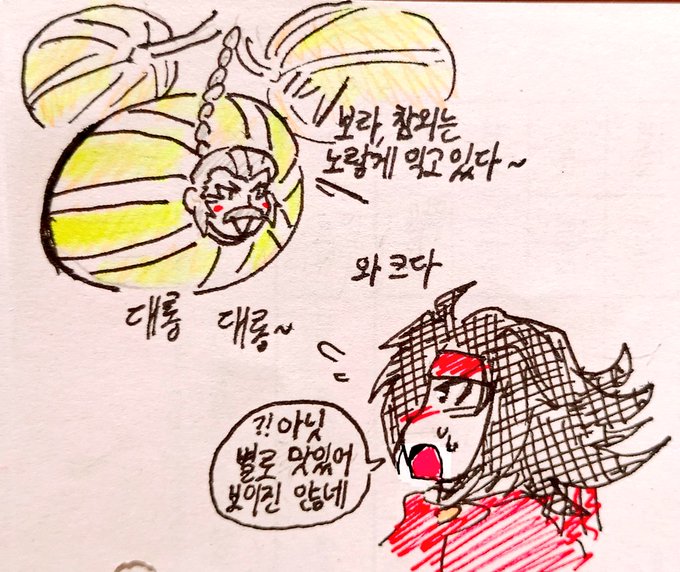 보라, 참외는
노랗게 익고 있다~
와 크다
대롱 대롱~
?! 아닛
별로 맛있어
보이진 않네